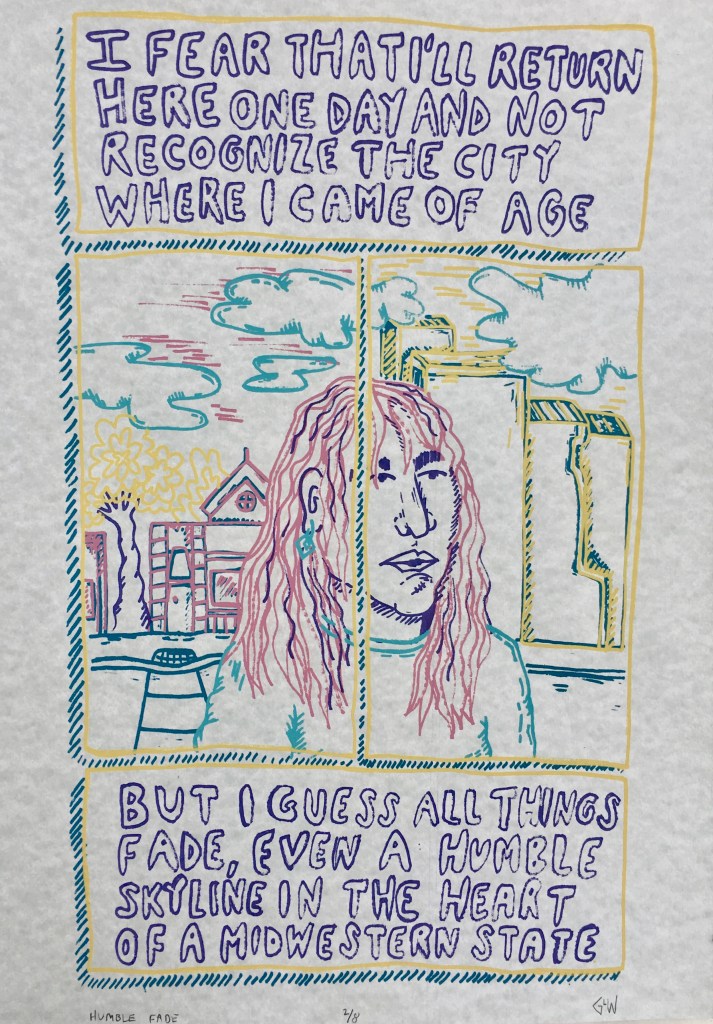 I FEAR THAT I'LL RETURN
HERE ONE DAY AND NOT
RECOGNIZE THE CITY
WHERE I CAME OF AGE
BUT I GUESS ALL THINGS
FADE, EVEN A HUMBLE
SKYLINE IN THE HEART
OF A MIDWESTERN STATE
HUMBLE FADE 2/8 GLW